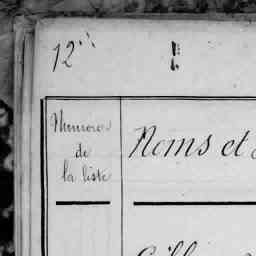 12
Numéros
de
la liste
Noms et